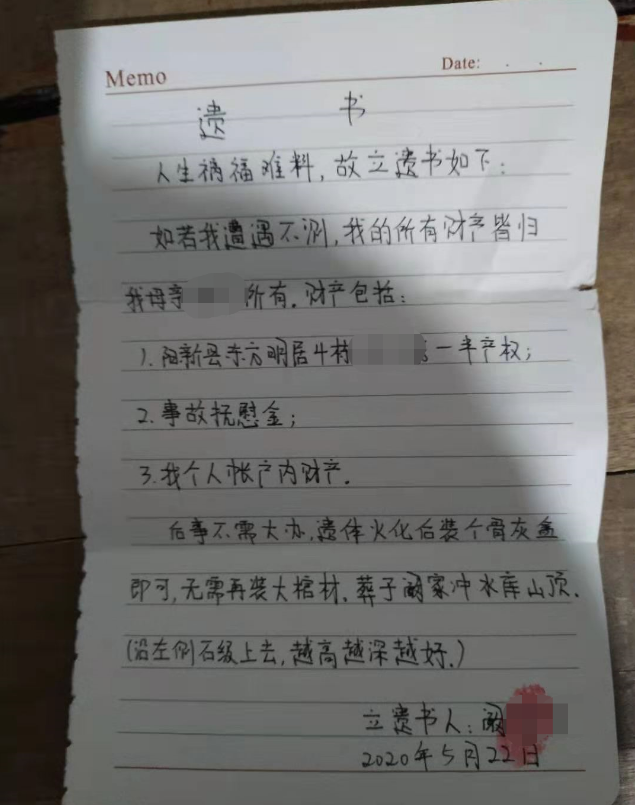 Memo Date: . .
遗 书
人生祸福难料,故立遗书如下:
如若我遭遇不测,我的所有财产皆归
我母亲 所有.财产包括:
1.阳新县东方明居4栋 一半产权;
2.事故抚慰金;
3.我个人帐户内财产.
后事不需大办,遗体火化后装个骨灰盒
即可,无需再装大棺材.葬于阚家冲水库山顶.
(沿左侧石级上去,越高越深越好.)
立遗书人:阚
2020年5月22日